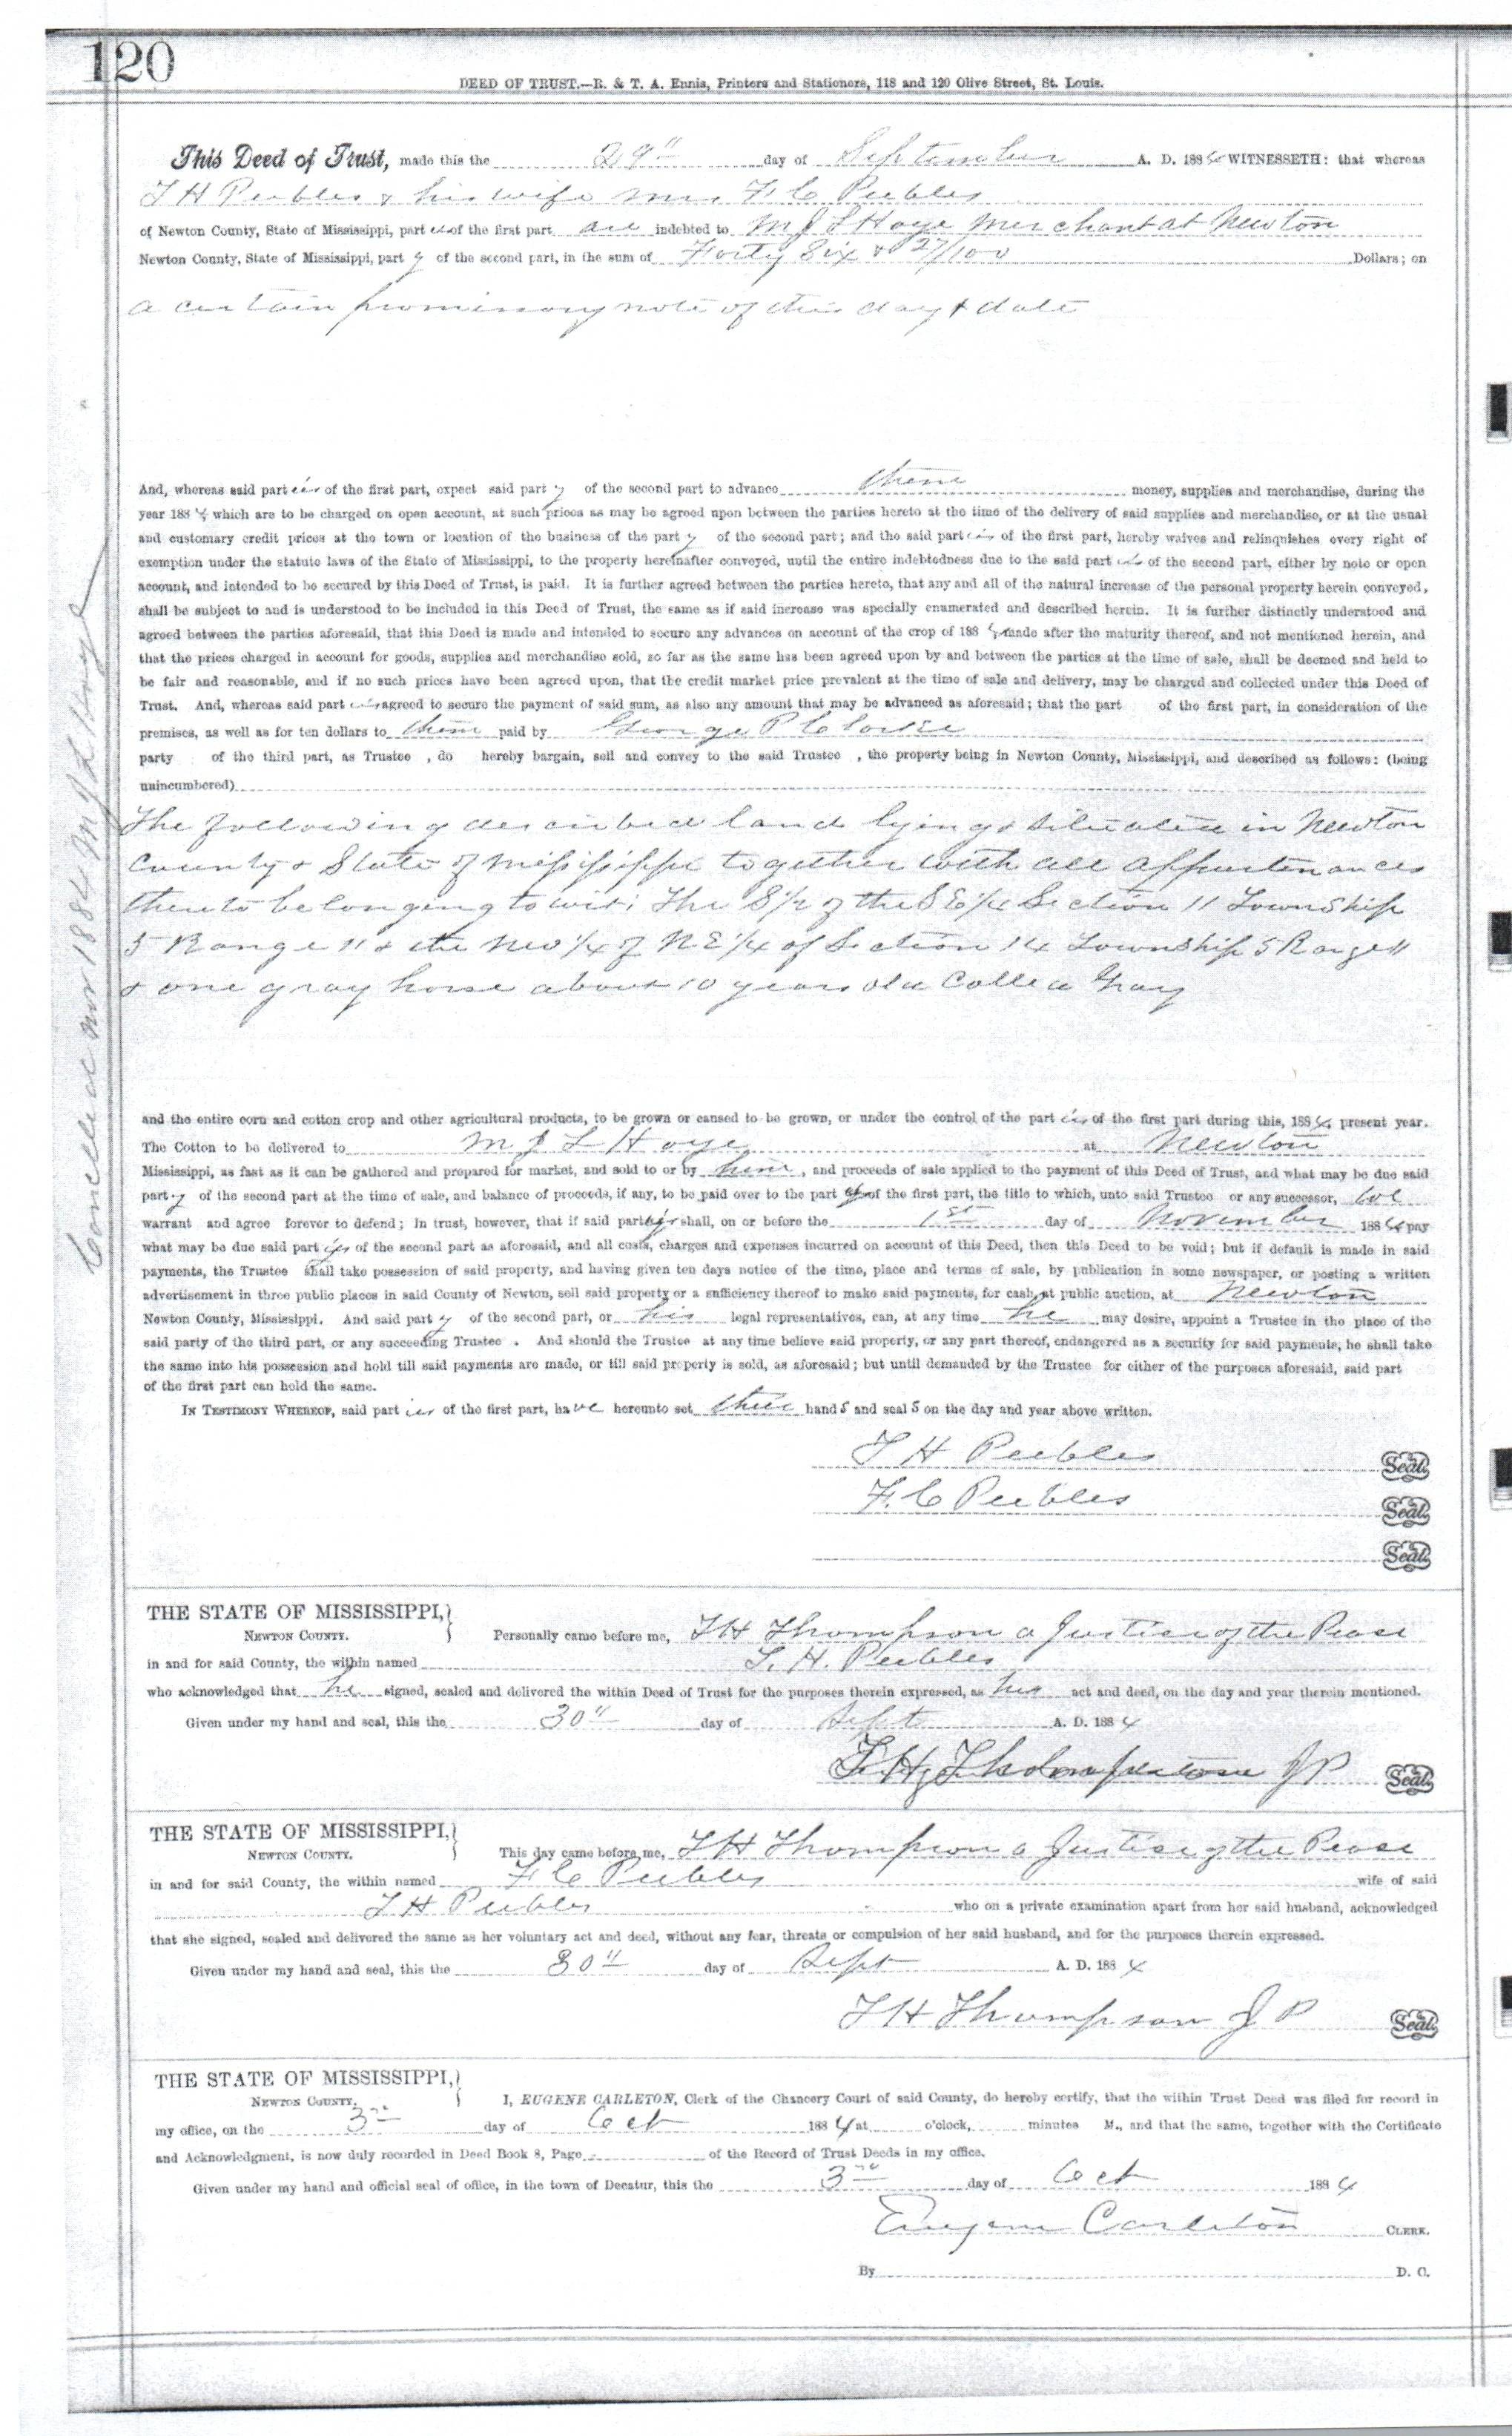 120
DEED OF TRUST.—R. & T. A. Ennis, Printers and Stationers, 118 and 120 Olive Street, St. Louis.
This Deed of Trust, made this the 29" day of September A. D. 1884 WITNESSETH: that whereas
T H Peebles & his wife Mrs F. C Peebles
of Newton County, State of Mississippi, part ies of the first part are indebted to M J L Hoye Merchant at Newton
Newton County, State of Mississippi, part y of the second part, in the sum of Forty Six & 27/100 Dollars; on
a certain promissory note of this day & date
And, whereas said part ies of the first part, expect said part y of the second part to advance them money, supplies and merchandise, during the
year 1884 which are to be charged on open account, at such prices as may be agreed upon between the parties hereto at the time of the delivery of said supplies and merchandise, or at the usual
and customary credit prices at the town or location of the business of the part y of the second part; and the said part ies of the first part, hereby waives and relinquishes every right of
exemption under the statute laws of the State of Mississippi, to the property hereinafter conveyed, until the entire indebtedness due to the said part ies of the second part, either by note or open
account, and intended to be secured by this Deed of Trust, is paid. It is further agreed between the parties hereto, that any and all of the natural increase of the personal property herein conveyed,
shall be subject to and is understood to be included in this Deed of Trust, the same as if said increase was specially enamerated and described herein. It is further distinctly understood and
agreed between the parties aforesaid, that this Deed is made and intended to secure any advances on account of the crop of 1884 made after the maturity thereof, and not mentioned herein, and
that the prices charged in account for goods, supplies and merchandise sold, so far as the same has been agreed upon by and between the parties at the time of sale, shall be deemed and held to
be fair and reasonable, and if no such prices have been agreed upon, that the credit market price prevalent at the time of sale and delivery, may be charged and collected under this Deed of
Trust. And, whereas said part ies agreed to secure the payment of said sum, as also any amount that may be advanced as aforesaid; that the part of the first part, in consideration of the
premises, as well as for ten dollars to them paid by George P Clarke
party of the third part, as Trustee , do hereby bargain, sell and convey to the said Trustee , the property being in Newton County, Mississippi, and described as follows: (being
unincumbered)
The following described land lying & situated in Newton
County & State of Mississippi together with all appurtenances
thereto belonging to wit: The S 1/2 of the S E 1/4 Section 11 Township
5 Range 11 & the NW 1/4 of N E 1/4 of Section 14 Township 5 Range 11
& one gray horse about 10 years old Called Gray
and the entire corn and cotton crop and other agricultural products, to be grown or caused to be grown, or under the control of the part ies of the first part during this, 1884, present year.
The Cotton to be delivered to M J L Hoye at Newton
Mississippi, as fast as it can be gathered and prepared for market, and sold to or by him , and proceeds of sale applied to the payment of this Deed of Trust, and what may be due said
part y of the second part at the time of sale, and balance of proceeds, if any, to be paid over to the part of the first part, the title to which, unto said Trustee or any successor, we
warrant and agree forever to defend; In trust, however, that if said parties shall, on or before the 1st day of November 1884 pay
what may be due said part ies of the second part as aforesaid, and all costs, charges and expenses incurred on account of this Deed, then this Deed to be void; but if default is made in said
payments, the Trustee shall take possession of said property, and having given ten days notice of the time, place and terms of sale, by publication in some newspaper, or posting a written
advertisement in three public places in said County of Newton, sell said property or a sufficiency thereof to make said payments, for cash, at public auction, at Newton
Newton County, Mississippi. And said part y of the second part, or his legal representatives, can, at any time he may desire, appoint a Trustee in the place of the
said party of the third part, or any succeeding Trustee . And should the Trustee at any time believe said property, or any part thereof, endangered as a security for said payments, he shall take
the same into his possession and hold till said payments are made, or till said property is sold, as aforesaid; but until demanded by the Trustee for either of the purposes aforesaid, said part
of the first part can hold the same.
IN TESTIMONY WHEREOF, said part ies of the first part, have hereunto set their hands and seals on the day and year above written.
T H Peebles Seal.
F. C Peebles Seal.
Seal.
THE STATE OF MISSISSIPPI,
NEWTON COUNTY. Personally came before me, T H Thompson a Justice of the Peace
in and for said County, the within named T. H. Peebles
who acknowledged that he signed, sealed and delivered the within Deed of Trust for the purposes therein expressed, as his act and deed, on the day and year therein mentioned.
Given under my hand and seal, this the 30" day of Sept A. D. 1884
T. H. Thompson J P Seal.
THE STATE OF MISSISSIPPI,
NEWTON COUNTY. This day came before me, T H Thompson a Justice of the Peace
in and for said County, the within named F C Peebles wife of said
T H Peebles who on a private examination apart from her said husband, acknowledged
that she signed, sealed and delivered the same as her voluntary act and deed, without any fear, threats or compulsion of her said husband, and for the purposes therein expressed.
Given under my hand and seal, this the 30" day of Sept A. D. 1884
T H Thompson J P Seal.
THE STATE OF MISSISSIPPI,
NEWTON COUNTY. I, EUGENE CARLETON, Clerk of the Chancery Court of said County, do hereby certify, that the within Trust Deed was filed for record in
my office, on the 3rd day of Oct 1884 at o'clock, minutes M., and that the same, together with the Certificate
and Acknowledgment, is now duly recorded in Deed Book 8, Page of the Record of Trust Deeds in my office.
Given under my hand and official seal of office, in the town of Decatur, this the 3rd day of Oct 1884
Eugene Carleton CLERK.
By D. C.
Cancelled Nov 1884 M J L Hoye